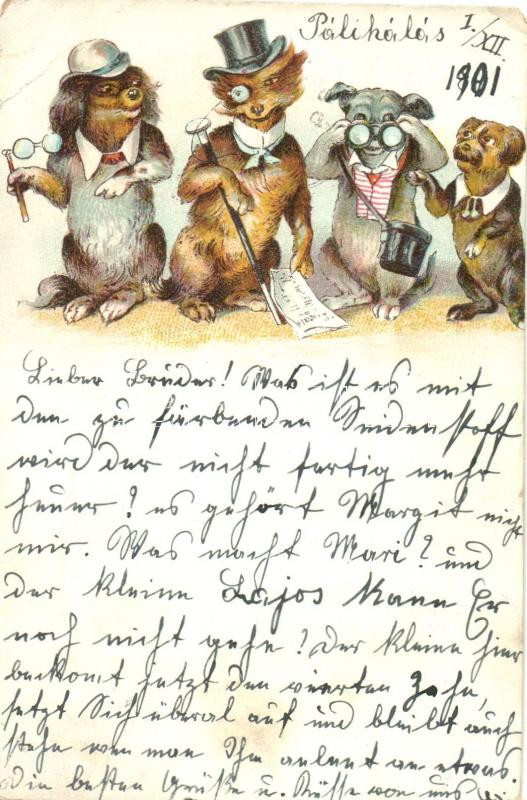 Pálihálás I./XII.
1901
Lieber Bruder! Was ist es mit
den zu färbenden Seidenstoff
wird der nicht fertig mehr
heuer? es gehört Margit nicht
mir. Was macht Mari? und
der kleine Lajos kann Er
noch nicht gehe? Der kleine hier
bekomt jetzt den vierten Zahn,
setzt Sich überal auf und bleibt auch
stehn wen man Ihm anlent an etwas.
Die besten Grüße u. Küsse von uns